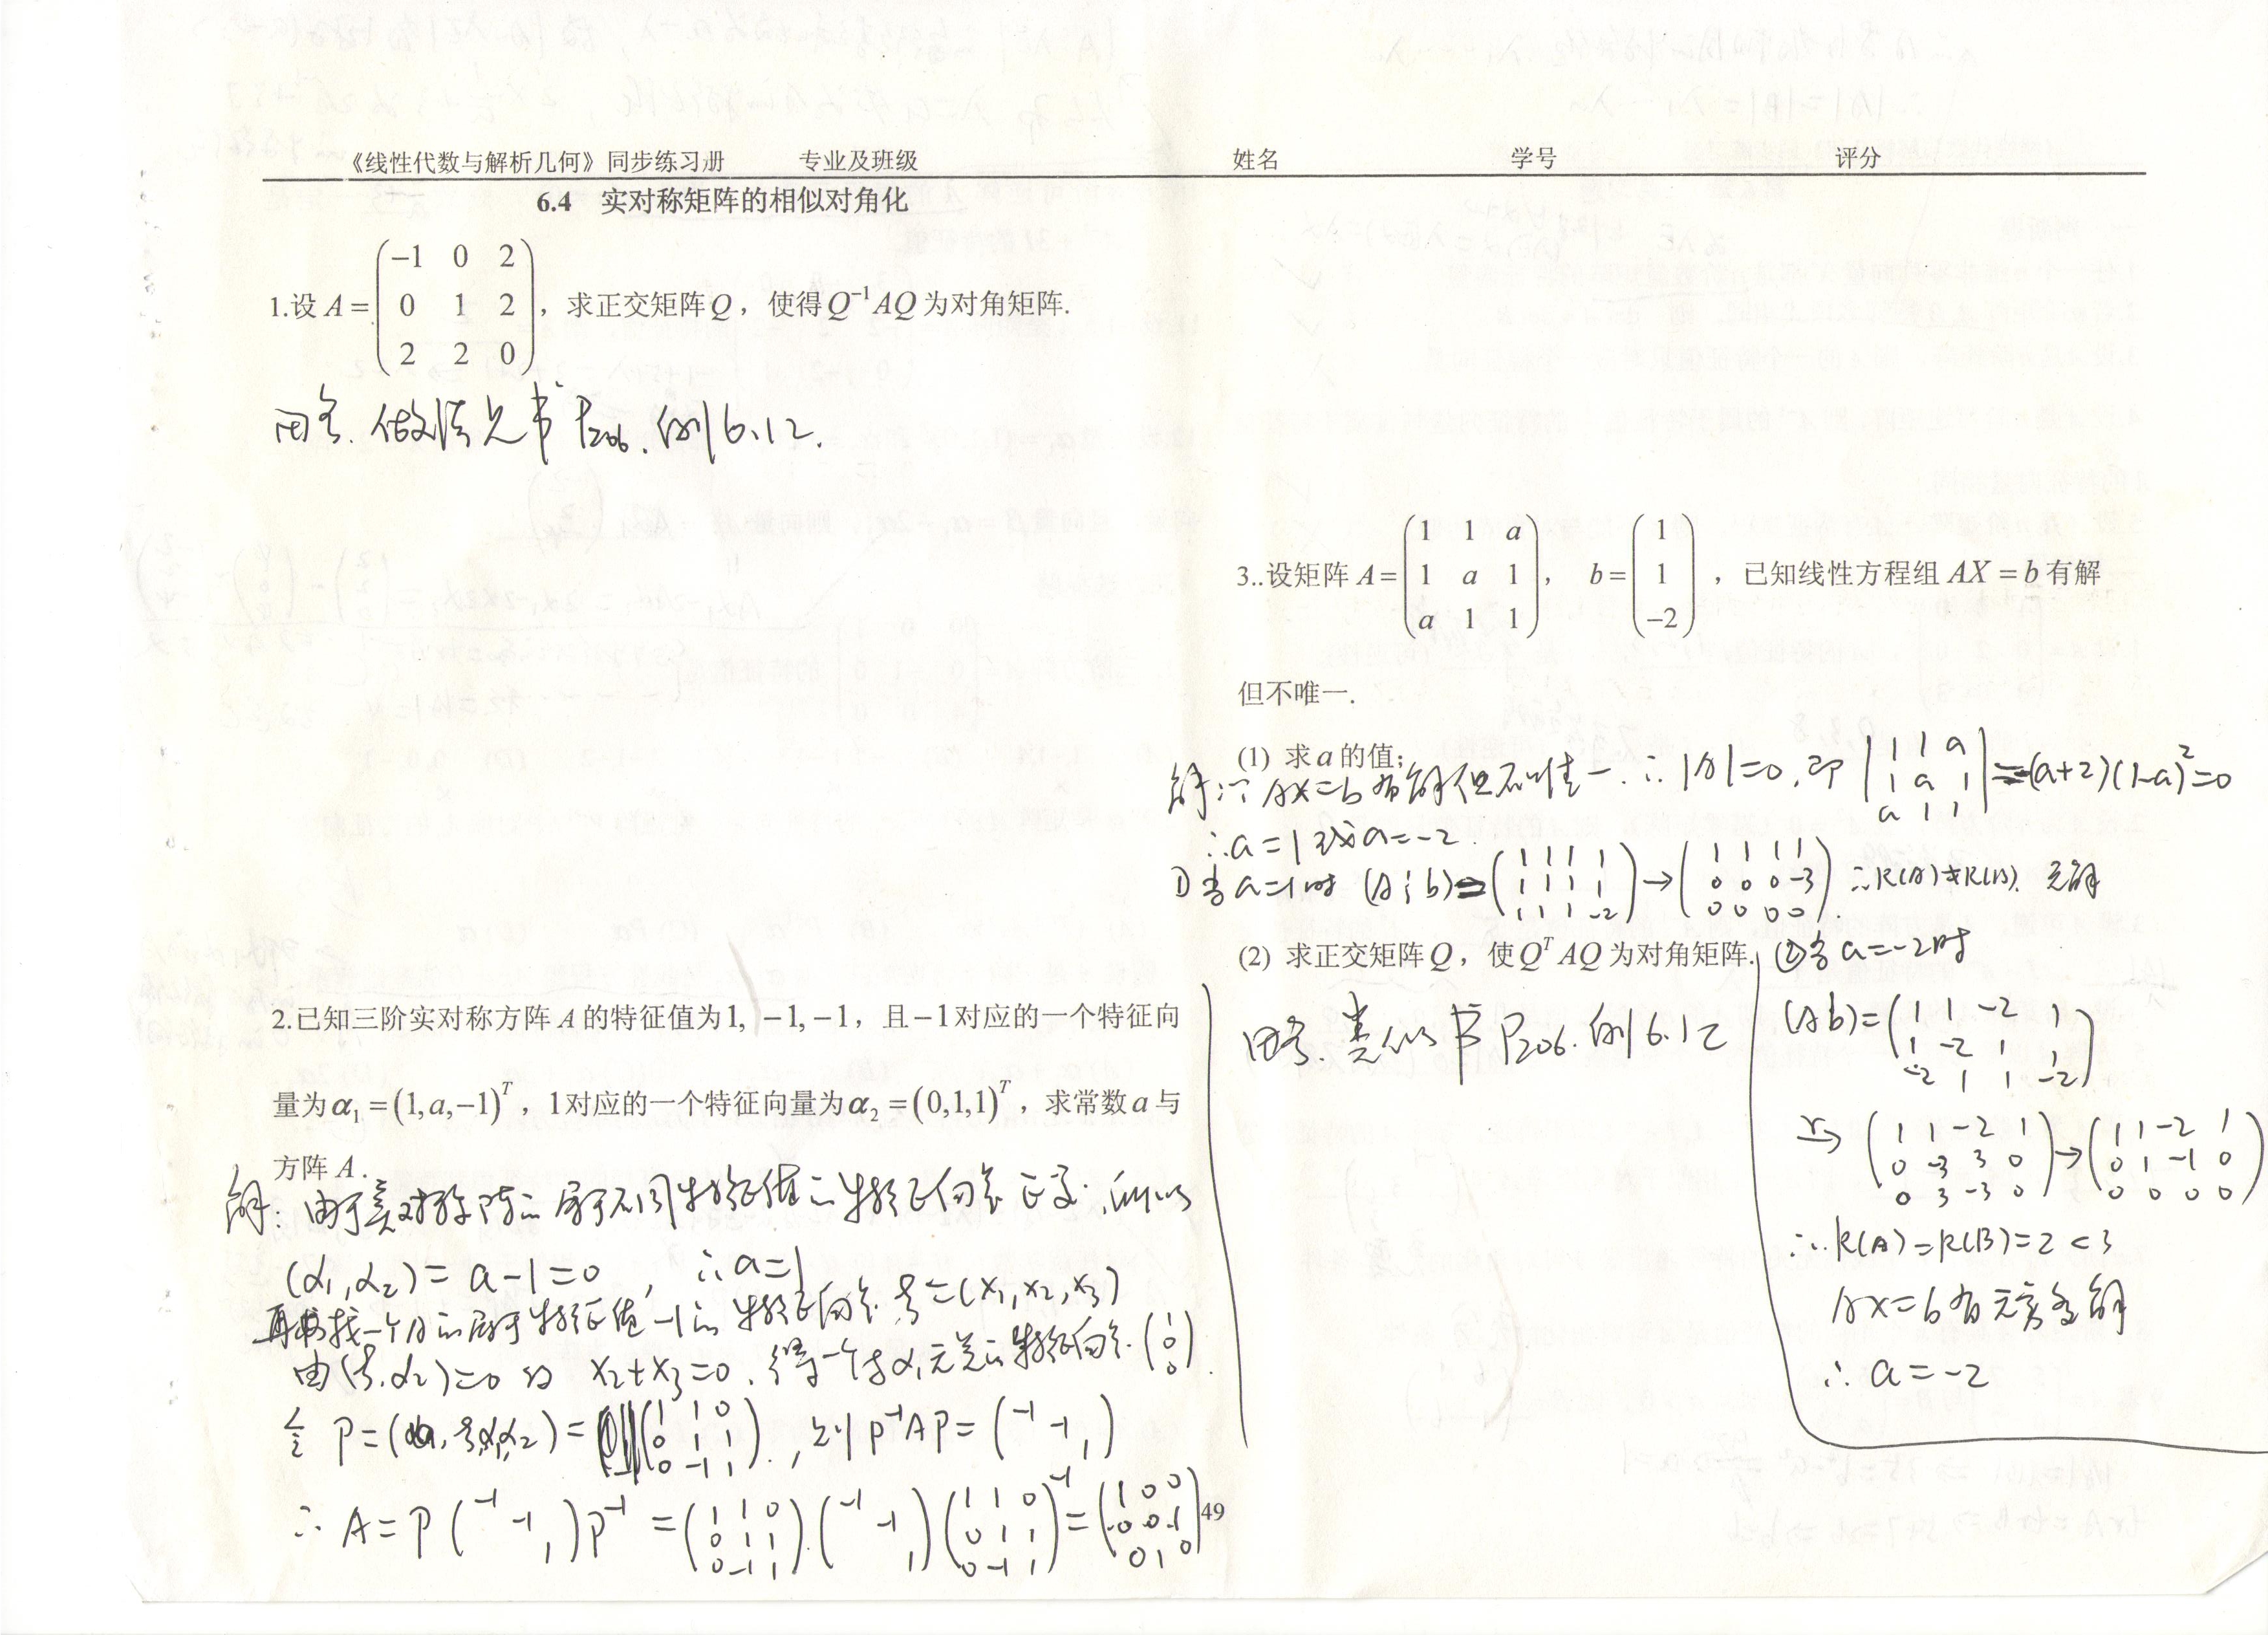 《线性代数与解析几何》同步练习册 专业及班级 姓名 学号 评分
6.4 实对称矩阵的相似对角化
1.设 A = \begin{pmatrix} -1 & 0 & 2 \\ 0 & 1 & 2 \\ 2 & 2 & 0 \end{pmatrix}，求正交矩阵 Q，使得 Q^{-1}AQ 为对角矩阵.
略. 做法见书 P206. 例6.12.
2.已知三阶实对称方阵 A 的特征值为 1, -1, -1，且 -1 对应的一个特征向
量为 α_1 = (1, a, -1)^T，1 对应的一个特征向量为 α_2 = (0,1,1)^T，求常数 a 与
方阵 A.
解: 由于实对称阵的属于不同特征值的特征向量正交, 所以
(α_1, α_2) = a-1 = 0, ∴ a=1
再找一个A的属于特征值-1的特征向量 ξ=(x_1, x_2, x_3)
由(ξ, α_2)=0 的 x_2+x_3=0, 得一个与α_1无关的特征向量 \begin{pmatrix} 1 \\ 0 \\ 0 \end{pmatrix}.
令 P=(ξ, α_1, α_2) = \begin{pmatrix} 1 & 1 & 0 \\ 0 & 1 & 1 \\ 0 & -1 & 1 \end{pmatrix}, 则 P^{-1}AP = \begin{pmatrix} -1 & & \\ & -1 & \\ & & 1 \end{pmatrix}
∴ A = P \begin{pmatrix} -1 & & \\ & -1 & \\ & & 1 \end{pmatrix} P^{-1} = \begin{pmatrix} 1 & 1 & 0 \\ 0 & 1 & 1 \\ 0 & -1 & 1 \end{pmatrix} \begin{pmatrix} -1 & & \\ & -1 & \\ & & 1 \end{pmatrix} \begin{pmatrix} 1 & 1 & 0 \\ 0 & 1 & 1 \\ 0 & -1 & 1 \end{pmatrix}^{-1} = \begin{pmatrix} 1 & 0 & 0 \\ 0 & 0 & 1 \\ 0 & 1 & 0 \end{pmatrix}
49
3..设矩阵 A = \begin{pmatrix} 1 & 1 & a \\ 1 & a & 1 \\ a & 1 & 1 \end{pmatrix}, b = \begin{pmatrix} 1 \\ 1 \\ -2 \end{pmatrix}，已知线性方程组 AX = b 有解
但不唯一.
(1) 求 a 的值;
解: ∵ AX=b 有解但不惟一. ∴ |A|=0, 即 \begin{vmatrix} 1 & 1 & a \\ 1 & a & 1 \\ a & 1 & 1 \end{vmatrix} = -(a+2)(1-a)^2=0
∴ a=1 或 a=-2.
① 当 a=1时 (A¦b)= \begin{pmatrix} 1 & 1 & 1 & 1 \\ 1 & 1 & 1 & 1 \\ 1 & 1 & 1 & -2 \end{pmatrix} → \begin{pmatrix} 1 & 1 & 1 & 1 \\ 0 & 0 & 0 & -3 \\ 0 & 0 & 0 & 0 \end{pmatrix} ∴ R(A)≠R(B). 无解
(2) 求正交矩阵 Q，使 Q^T AQ 为对角矩阵.
略. 类似书 P206. 例6.12
② 当 a=-2时
(A b)= \begin{pmatrix} 1 & 1 & -2 & 1 \\ 1 & -2 & 1 & 1 \\ -2 & 1 & 1 & -2 \end{pmatrix}
\xrightarrow{r} \begin{pmatrix} 1 & 1 & -2 & 1 \\ 0 & -3 & 3 & 0 \\ 0 & 3 & -3 & 0 \end{pmatrix} → \begin{pmatrix} 1 & 1 & -2 & 1 \\ 0 & 1 & -1 & 0 \\ 0 & 0 & 0 & 0 \end{pmatrix}
∴ R(A)=R(B)=2<3
AX=b有无穷多解
∴ a=-2